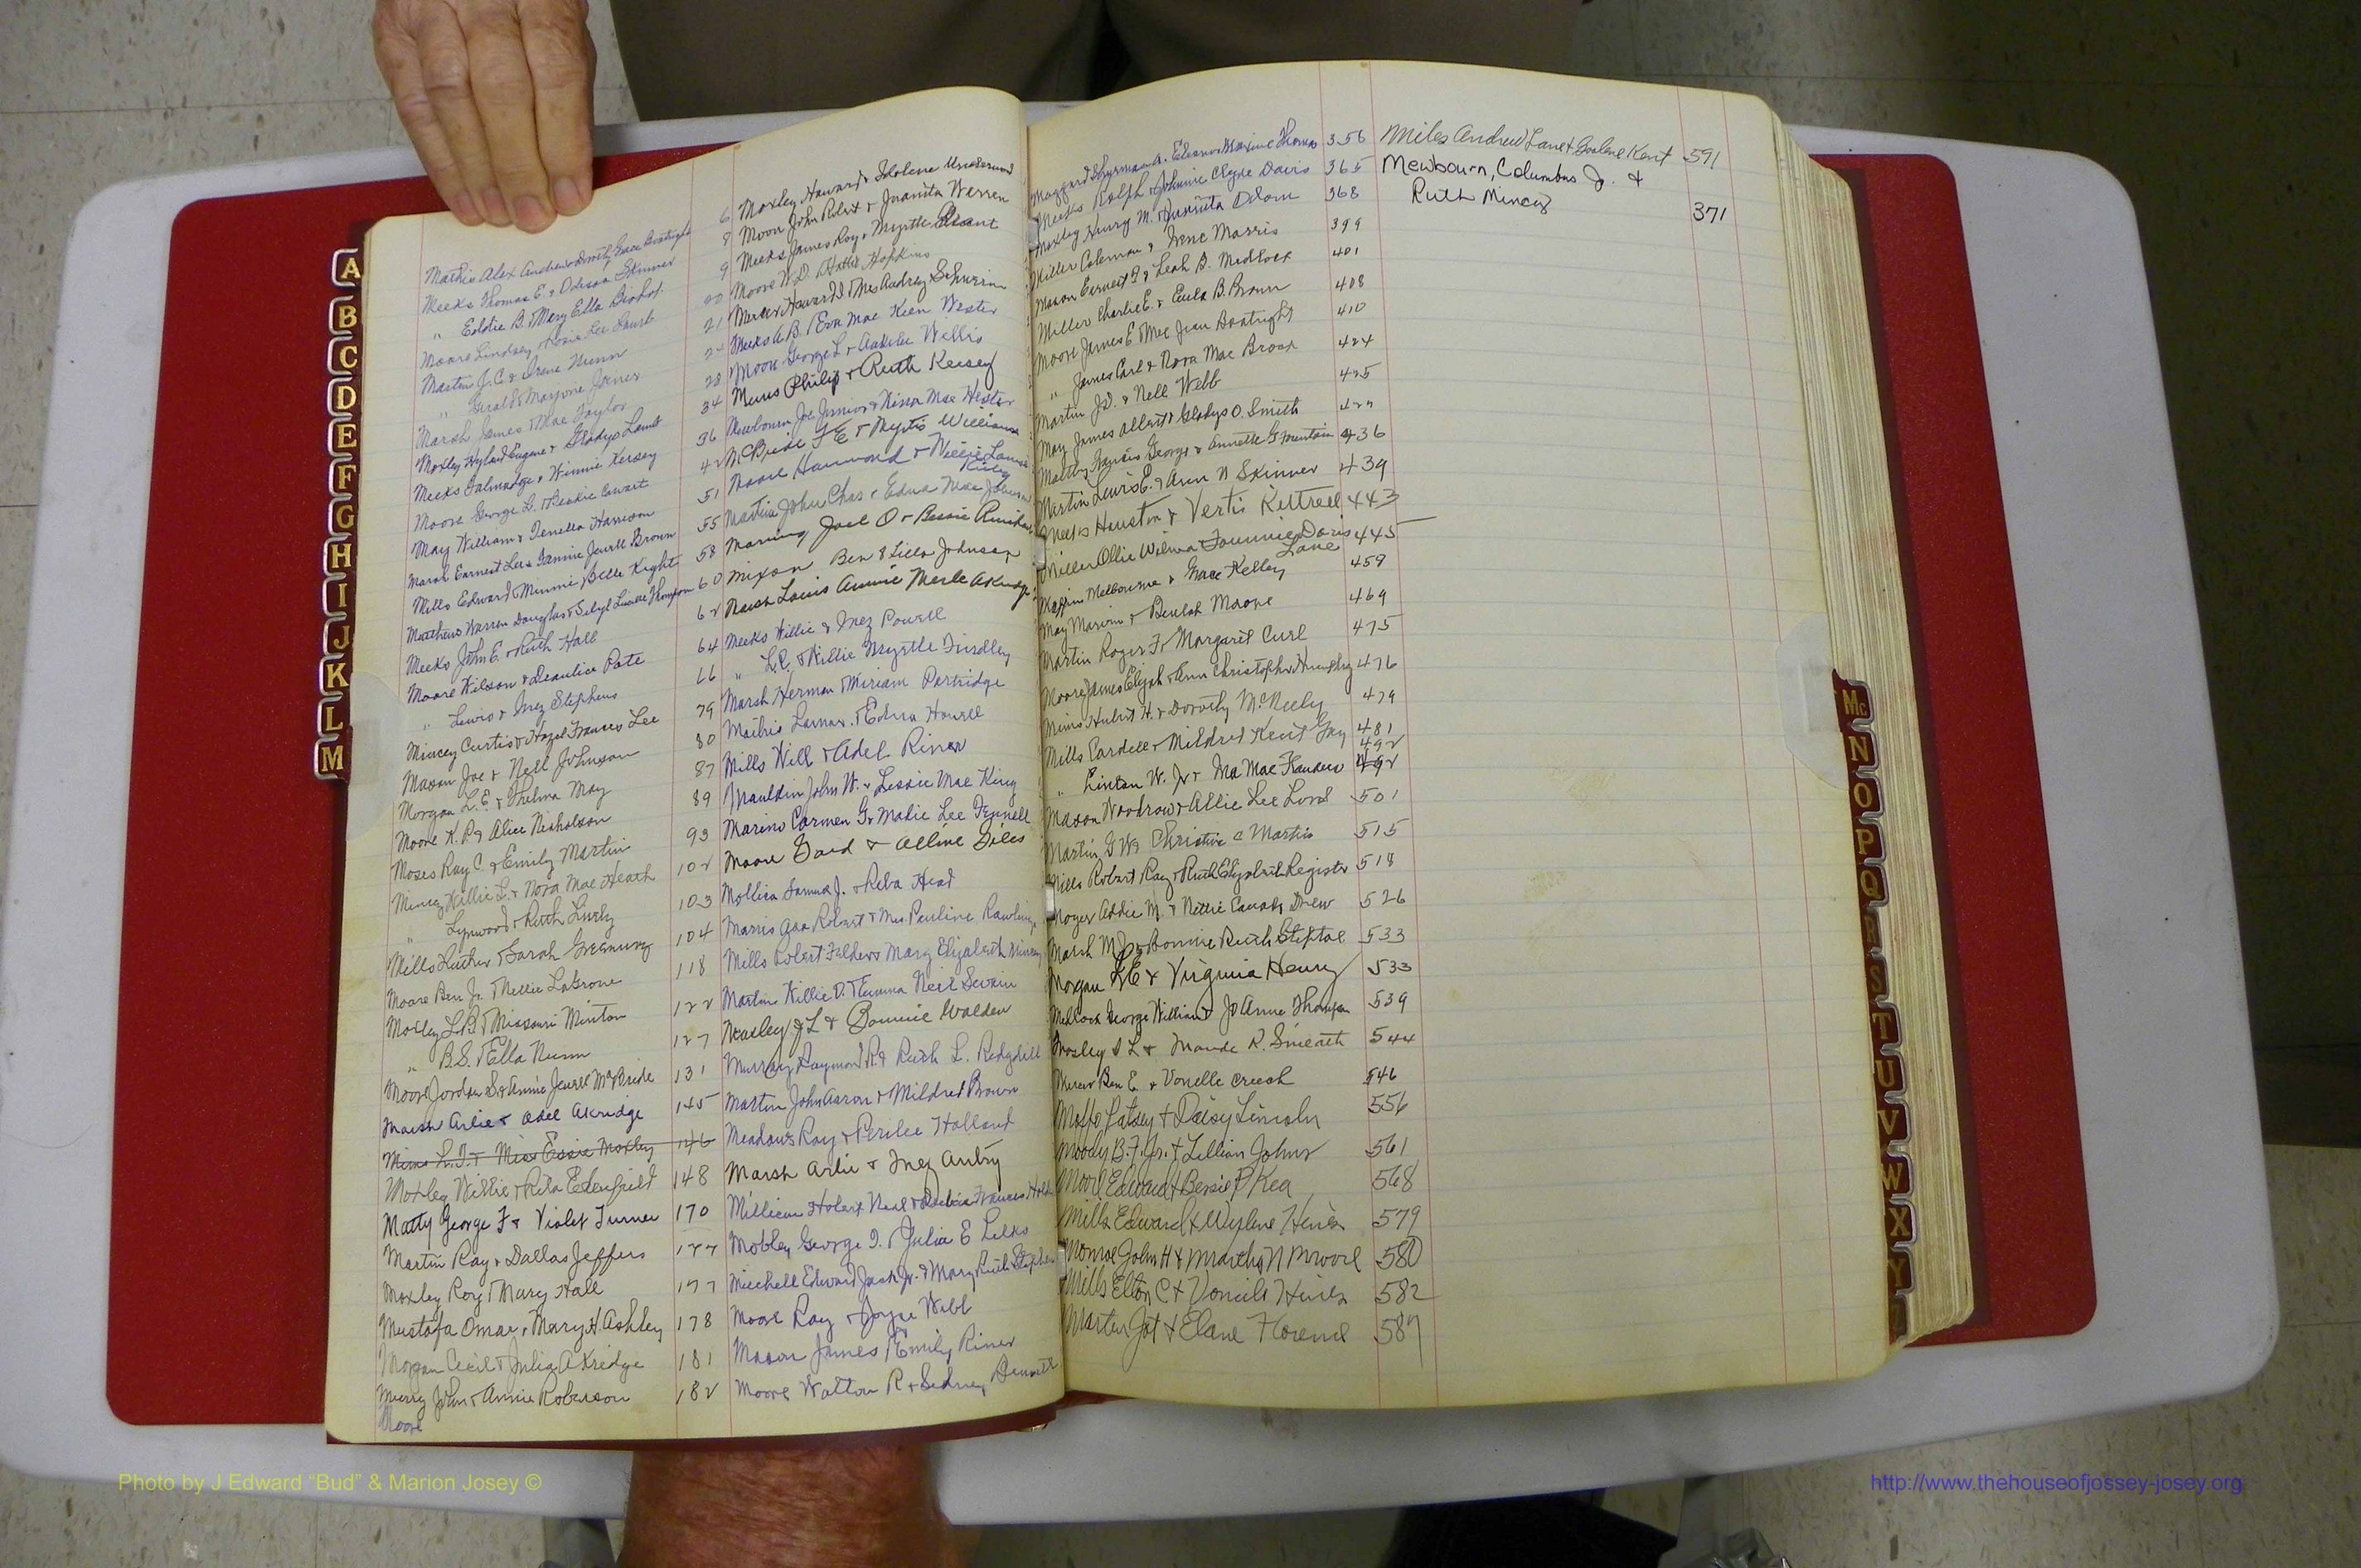 Mathis Alex Andrew & Dorothy Grace Boatright 6
Meeks Thomas E. & Odessa Skinner 8
" Eddie B. & Mary Ella Bishop 9
Moore Lindsey & Rosie Lee 20
Martin J.C. & Irene Nunn 21
" Gerald & Marjorie Joiner
Marsh James & Mae Taylor 28
Moxley Hyland Eugene & Gladys Lamb 34
Meeks Talmadge & Winnie Kersey 36
Moore George L. & 42
May William & Tenella Harrison 51
Marsh Earnest Lee & Fannie Jewell Brown 55
Mills Edward & Minnie Belle Kight 58
Matthews Warren Douglas & Sibyl Lucille Thompson 60
Meeks John E. & Ruth Hall 62
Moore Wilson & Pate 64
" Lewis & Inez Stephens 66
Mincey Curtis & Hazel Frances Lee 79
Mason Joe & Nell Johnson 80
Morgan L.E. & Thelma May 87
Moore K.P. & Alice Nicholson 89
Moses Ray C. & Emily Martin 93
Mincey Willie L. & Nora Mae Heath 102
" Lynwood & Ruth Lively 103
Mills Luther & Sarah 104
Moore Ben Jr. & Nellie LaGrone 118
Motley L.B. & Missouri Minton 122
" B.S. & Ella Nunn 127
Moore Jordan S. & Annie Jewell McBride 131
Marsh Arlie & Odel Akridge 145
Mims L.T. & Miss Essie Moxley 146
Motley Willie & Reta Edenfield 148
Matty George F & Violet Turner 170
Martin Ray & Dallas Jeffers 177
Moxley Roy & Mary Hall 177
Mustafa Omar & Mary H. Ashley 178
Morgan Cecil & Julia Akridge 181
Murry John & Annie Roberson 182
Moore
Moxley Howard & Idolene Underwood
Moon John Robert & Juanita Warren
Meeks James Roy & Myrtle
Moore W.D. & Hattie Hopkins
Mercer Howard I & Mrs Audrey
Meeks A.B. & Eva Mae Kien Wester
Moon George L & Willis
Meeus Philip & Ruth Kersey
Mewbourn Joe Junior & Nina Mae Hester
McBride F E & Myrtis Williams
Moore Hammond & Willie Louise
Kirby
Martin John Chas & Edna Mae Johnson
Joel O & Bessie
Mixon Ben & Lilla Johnson
Marsh Louis Annie Merle Akridge
Meeks Willie & Inez Powell
" L.R. & Willie Myrtle Findley
Marsh Herman & Miriam Partridge
Mathis Lamar & Edna Howell
Mills Will & Adel Riner
Mauldin John W. & Lessie Mae King
Marino Carmen G & Madie Lee Fennell
Moore & Alline Giles
Mollica J. & Reba Head
Morris Asa Robert & Mrs. Pauline Rawlings
Mills Robert Felder & Mary Elizabeth
Martin Willie D. & Emma Neil Swain
Moxley J L & Bonnie Walden
Murray Raymond R & Ruth L. Redgdill
Martin John Aaron & Mildred Brown
Meadows Ray & Perilee Holland
Marsh Arlie & Inez Autry
Millican Hobert Neal & Frances
Mobley George I. & Julia E
Mitchell Edward Jack Jr. & Mary Ruth Stephens
Moore Ray & Joyce Webb
Mason James & Emily Riner
Moore Walton R & Sidney
Maggard A. Eleanor Maxine Thomas 356
Meeks Ralph & Johnnie Clyde Davis 365
Moxley Henry M. & Henrietta Odom 368
Miller Coleman & Irene Morris 399
Mason Earnest T & Leah B. Medlock 401
Miller Charlie E. & Eula B. Brown 408
Moore James E & Mae Jean Boatright 410
" James Carl & Nora Mae Brock 424
Martin J.D. & Nell Webb 425
May James Albert & Gladys O. Smith
Maltby Francis George & Annette G Fountain 436
Martin Lewis E. & Ann N Skinner 439
Meeks Houston & Vertis Kittrell 443
Miller Ollie Wilma Davis 445
Lane
Melbourne & Grace Kelley 459
May Marvin & Beulah Moore 469
Martin Roger F & Margaret Curl 475
Moore James Elijah & Ann Christopher Humphry 476
Mims Hubert H. & Dorothy McNeely 479
Mills Cordell & Mildred Kent Gay 481
492
" Linton W. Jr & Ida Mae Flanders 492
Mason Woodrow & Allie Lee Lord 501
Martin G W & Christine C Martin 515
Mills Robert Ray & Ruth Elizabeth Register 518
Moyer Addie M. & Nettie Drew 526
Marsh M J & Bonnie Ruth Steptoe 533
Morgan & Virginia Henry 533
Medlock George William & Jo Anne Thompson 539
Mosley S L & Maude R. 544
Mercer Ben E. & Vonelle Creech 546
Patsey & Daisy Lincoln 556
Moody B.F. Jr. & Lillian Johns 561
Moore Edward & Bessie P Kea 568
Mills Edward & Wylene Hines 579
Monroe John H & Martha N Moore 580
Mills Elton C & Voncile Hines 582
Martin & Elane 587
Miles Andrew Lane & Kent 591
Mewbourn, Columbus Jr. &
Ruth Mincey 371
A
B
C
D
E
F
G
H
I
J
K
L
M
Mc
N
O
P
Q
R
S
T
U
V
W
X
Y
Photo by J Edward “Bud” & Marion Josey ©
http://www.thehouseofjossey-josey.org